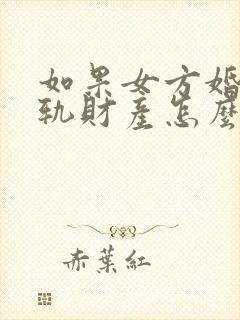 如果女方婚
軌財産怎麼
赤葉紅